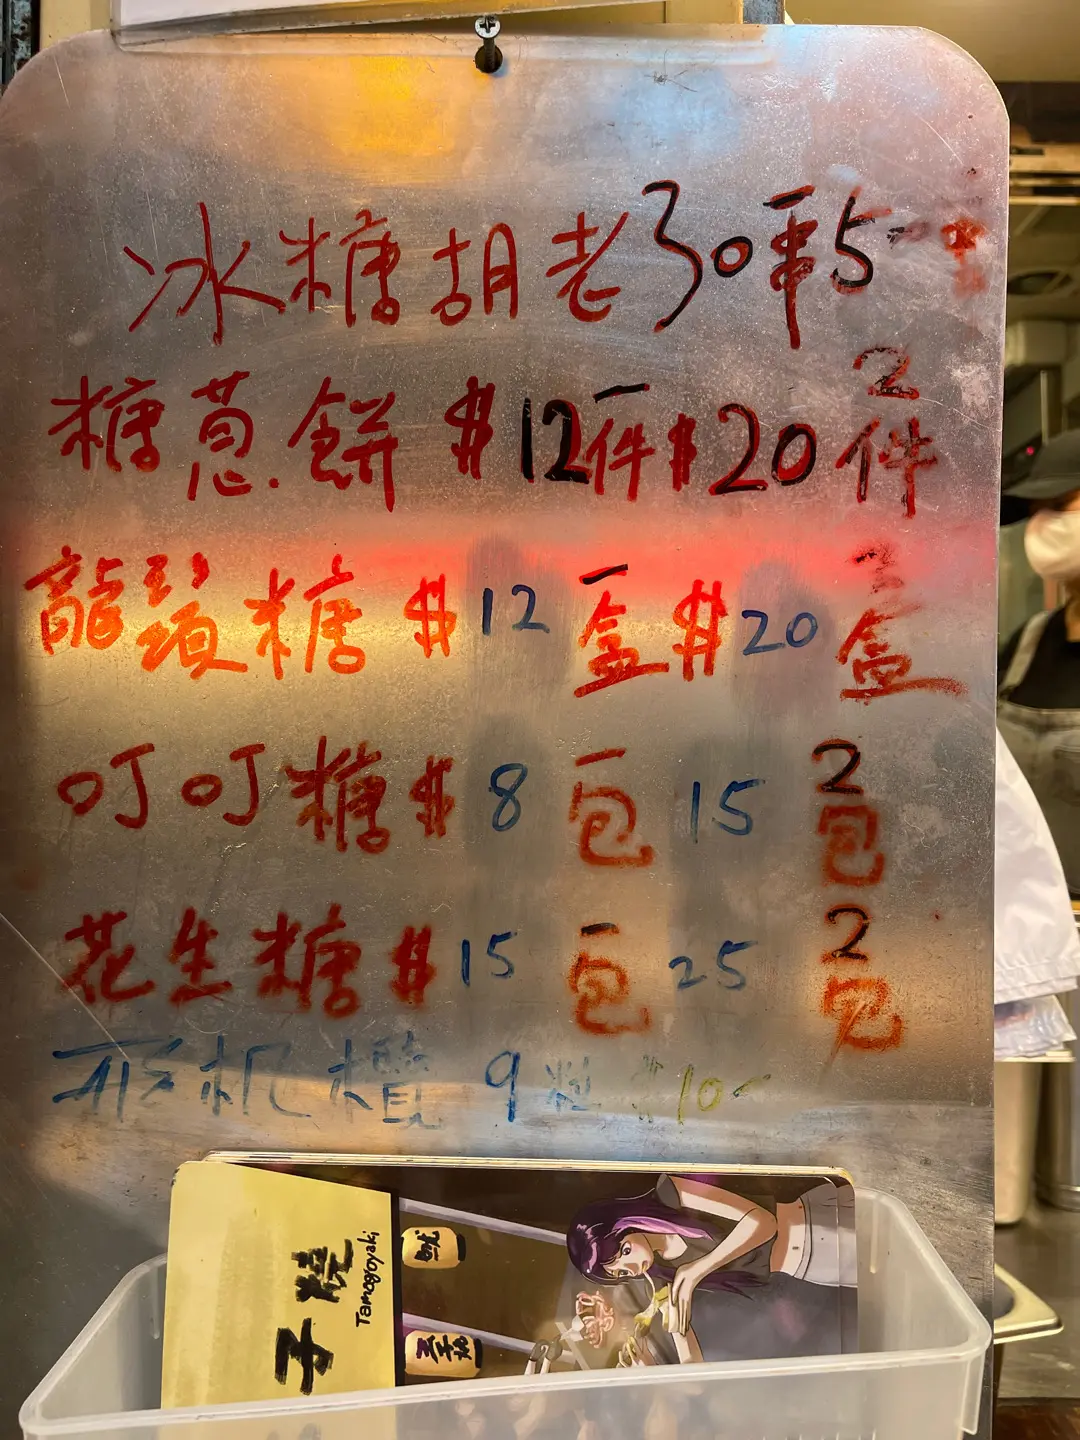 冰糖胡老30一串5
糖葱餅 $12一件$20 2件
龍頭糖 $12一盒$20 2盒
叮叮糖$8一包15 2包
花生糖$15一包25 2包
机欖 9粒 $10
子燒
Tamagoyaki